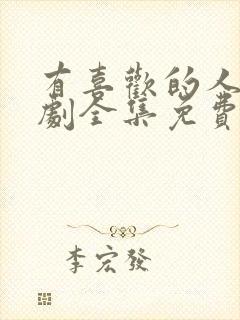 有喜歡的人
劇全集免費
李宏發